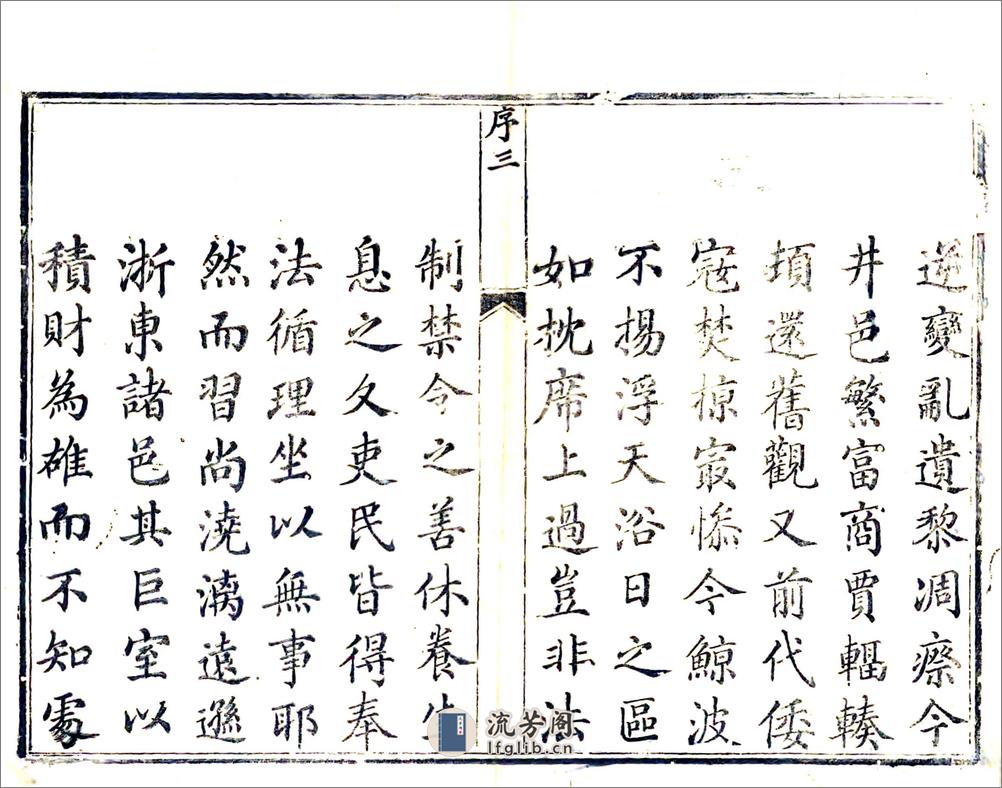 逆變亂遺黎凋瘵今
井邑繁富商賈輻輳
頓還舊觀又前代倭
寇焚掠㝡慘今鯨波
不揚浮天浴日之區
如枕席上過豈非法
序三
制禁令之善休養生
息之久吏民皆得奉
法循理坐以無事耶
然而習尚澆漓遠遜
浙東諸邑其巨室以
積財為雄而不知處
流芳阁
lfglib.cn